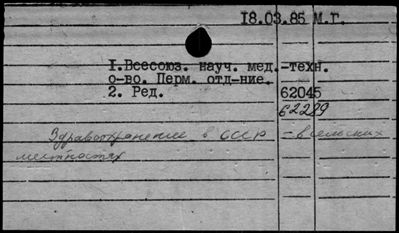 18.03.85 М.Г.
1.Всесоюз. науч. мед.-техн.
о-во. Перм. отд-ние.
2. Ред. 62045
62229
Здравоохранение в СССР - в сельских
местностях